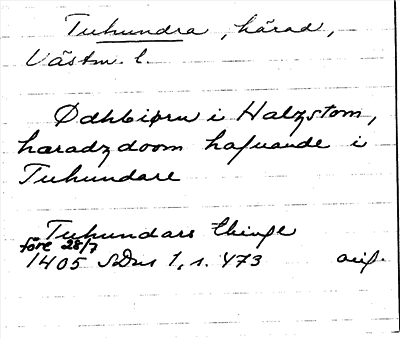 Tuhundra, härad,
Västm. l.
Ødhbiørn i Halzstom,
haradzdoom hafuande i
Tuhundare
Tuhundars thinge
före 28/7
1405 SDns 1, s. 473 avs.